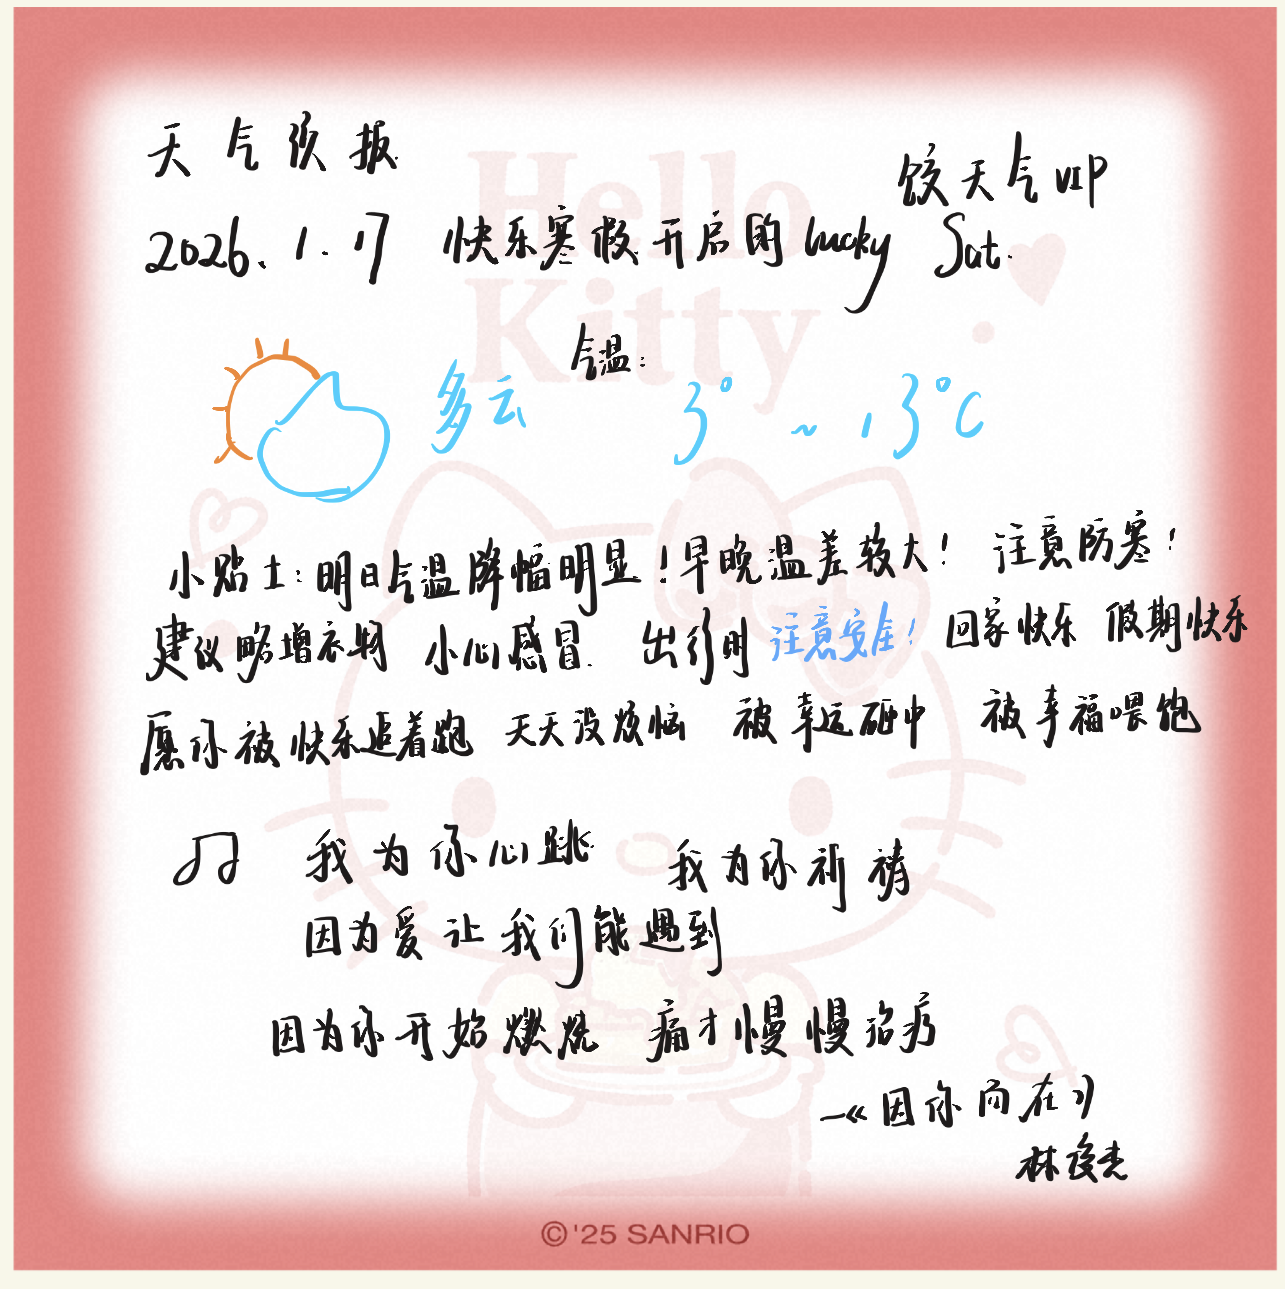 天气预报
饺天气VIP
2026.1.17 快乐寒假开启的lucky Sat.
Hello
Kitty
气温:
多云 3°~13°C
小贴士:明日气温降幅明显!早晚温差较大! 注意防寒!
建议略增衣物 小心感冒. 出行时注意安全! 回家快乐 假期快乐
愿你被快乐追着跑 天天没烦恼 被幸运砸中 被幸福喂饱
我为你心跳 我为你祈祷
因为爱让我们能遇到
因为你开始燃烧 痛才慢慢治疗
—《因你而在》
林俊杰
©'25 SANRIO